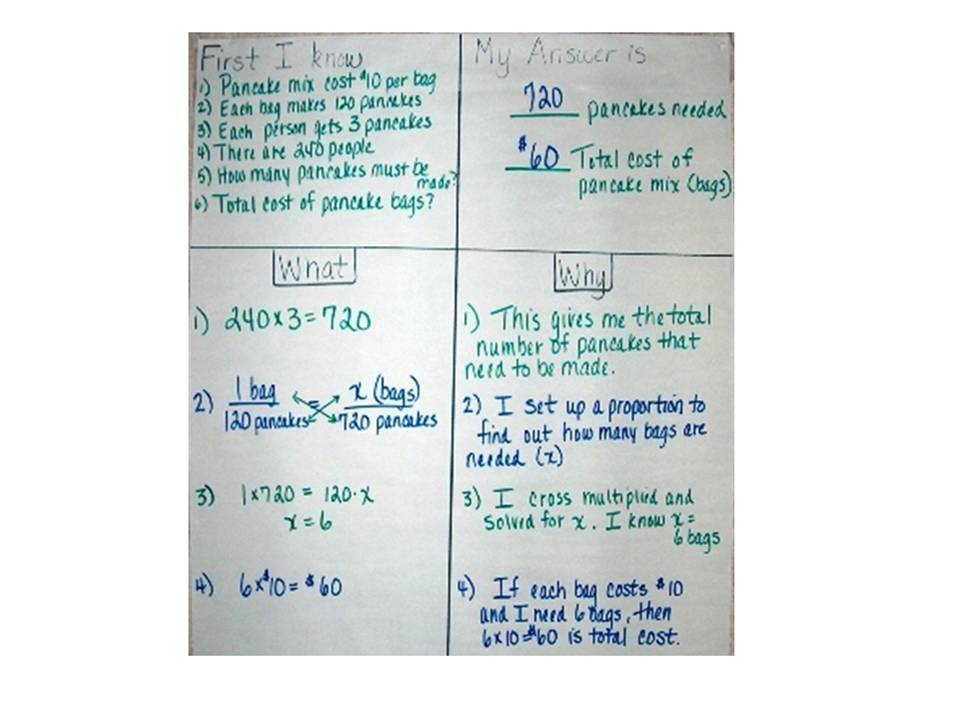 First I know
1) Pancake mix cost $10 per bag
2) Each bag makes 120 pancakes
3) Each person gets 3 pancakes
4) There are 240 people
5) How many pancakes must be
made?
6) Total cost of pancake bags?
My Answer is
720 pancakes needed
$60 Total cost of
pancake mix (bags)
What
1) 240 x 3 = 720
2) 1 bag = x (bags)
120 pancakes 720 pancakes
3) 1 x 720 = 120 · x
x = 6
4) 6 x $10 = $60
Why
1) This gives me the total
number of pancakes that
need to be made.
2) I set up a proportion to
find out how many bags are
needed (x)
3) I cross multiplied and
solved for x. I know x =
6 bags
4) If each bag costs $10
and I need 6 bags, then
6 x 10 = $60 is total cost.